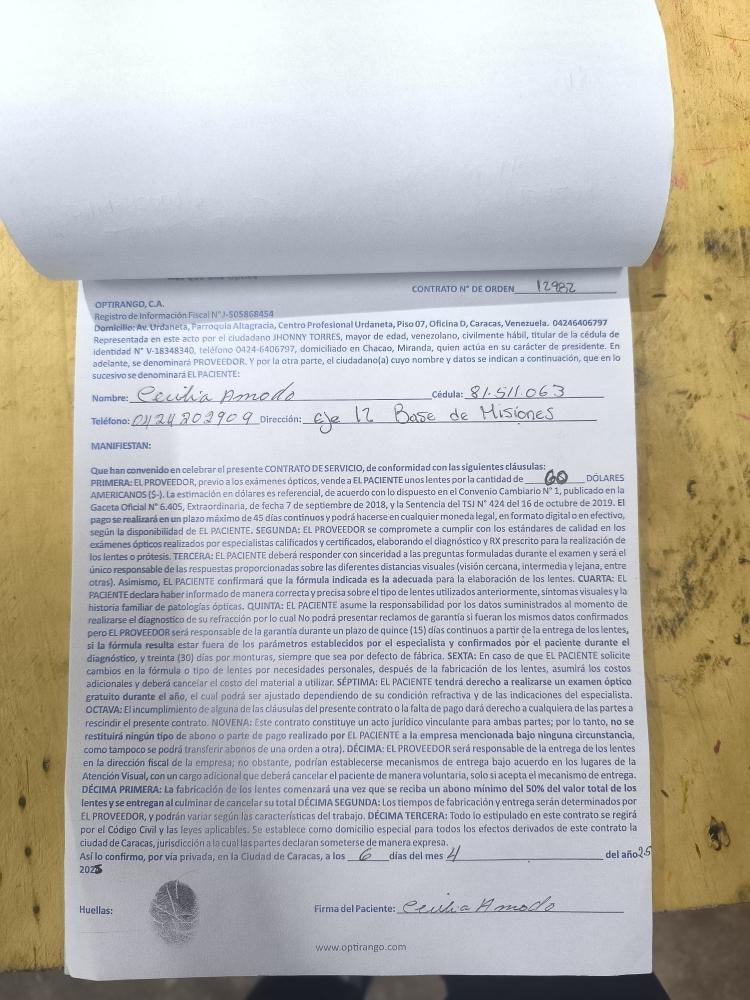 CONTRATO N° DE ORDEN 12982
OPTIRANGO, C.A.
Registro de Información Fiscal N°J-505868454
Domicilio: Av. Urdaneta, Parroquia Altagracia, Centro Profesional Urdaneta, Piso 07, Oficina D, Caracas, Venezuela. 04246406797
Representada en este acto por el ciudadano JHONNY TORRES, mayor de edad, venezolano, civilmente hábil, titular de la cédula de
identidad N° V-18348340, teléfono 0424-6406797, domiciliado en Chacao, Miranda, quien actúa en su carácter de presidente. En
adelante, se denominará PROVEEDOR. Y por la otra parte, el ciudadano(a) cuyo nombre y datos se indican a continuación, que en lo
sucesivo se denominará EL PACIENTE:
Nombre: Cecilia Amodo Cédula: 81.511.063
Teléfono: 0424202909 Dirección: eje 12 Base de Misiones
MANIFIESTAN:
Que han convenido en celebrar el presente CONTRATO DE SERVICIO, de conformidad con las siguientes cláusulas:
PRIMERA: EL PROVEEDOR, previo a los exámenes ópticos, vende a EL PACIENTE unos lentes por la cantidad de 60 DÓLARES
AMERICANOS ($-). La estimación en dólares es referencial, de acuerdo con lo dispuesto en el Convenio Cambiario N° 1, publicado en la
Gaceta Oficial N° 6.405, Extraordinaria, de fecha 7 de septiembre de 2018, y la Sentencia del TSJ N° 424 del 16 de octubre de 2019. El
pago se realizará en un plazo máximo de 45 días continuos y podrá hacerse en cualquier moneda legal, en formato digital o en efectivo,
según la disponibilidad de EL PACIENTE. SEGUNDA: EL PROVEEDOR se compromete a cumplir con los estándares de calidad en los
exámenes ópticos realizados por especialistas calificados y certificados, elaborando el diagnóstico y RX prescrito para la realización de
los lentes o prótesis. TERCERA: EL PACIENTE deberá responder con sinceridad a las preguntas formuladas durante el examen y será el
único responsable de las respuestas proporcionadas sobre las diferentes distancias visuales (visión cercana, intermedia y lejana, entre
otras). Asimismo, EL PACIENTE confirmará que la fórmula indicada es la adecuada para la elaboración de los lentes. CUARTA: EL
PACIENTE declara haber informado de manera correcta y precisa sobre el tipo de lentes utilizados anteriormente, síntomas visuales y la
historia familiar de patologías ópticas. QUINTA: EL PACIENTE asume la responsabilidad por los datos suministrados al momento de
realizarse el diagnostico de su refracción por lo cual No podrá presentar reclamos de garantía si fueran los mismos datos confirmados
pero EL PROVEEDOR será responsable de la garantía durante un plazo de quince (15) días continuos a partir de la entrega de los lentes,
si la fórmula resulta estar fuera de los parámetros establecidos por el especialista y confirmados por el paciente durante el
diagnóstico, y treinta (30) días por monturas, siempre que sea por defecto de fábrica. SEXTA: En caso de que EL PACIENTE solicite
cambios en la fórmula o tipo de lentes por necesidades personales, después de la fabricación de los lentes, asumirá los costos
adicionales y deberá cancelar el costo del material a utilizar. SÉPTIMA: EL PACIENTE tendrá derecho a realizarse un examen óptico
gratuito durante el año, el cual podrá ser ajustado dependiendo de su condición refractiva y de las indicaciones del especialista.
OCTAVA: El incumplimiento de alguna de las cláusulas del presente contrato o la falta de pago dará derecho a cualquiera de las partes a
rescindir el presente contrato. NOVENA: Este contrato constituye un acto jurídico vinculante para ambas partes; por lo tanto, no se
restituirá ningún tipo de abono o parte de pago realizado por EL PACIENTE a la empresa mencionada bajo ninguna circunstancia,
como tampoco se podrá transferir abonos de una orden a otra). DÉCIMA: EL PROVEEDOR será responsable de la entrega de los lentes
en la dirección fiscal de la empresa; no obstante, podrían establecerse mecanismos de entrega bajo acuerdo en los lugares de la
Atención Visual, con un cargo adicional que deberá cancelar el paciente de manera voluntaria, solo si acepta el mecanismo de entrega.
DÉCIMA PRIMERA: La fabricación de los lentes comenzará una vez que se reciba un abono mínimo del 50% del valor total de los
lentes y se entregan al culminar de cancelar su total DÉCIMA SEGUNDA: Los tiempos de fabricación y entrega serán determinados por
EL PROVEEDOR, y podrán variar según las características del trabajo. DÉCIMA TERCERA: Todo lo estipulado en este contrato se regirá
por el Código Civil y las leyes aplicables. Se establece como domicilio especial para todos los efectos derivados de este contrato la
ciudad de Caracas, jurisdicción a la cual las partes declaran someterse de manera expresa.
Así lo confirmo, por vía privada, en la Ciudad de Caracas, a los 6 días del mes 4 del año 25
2025
Huellas: Firma del Paciente: Cecilia Amodo
www.optirango.com